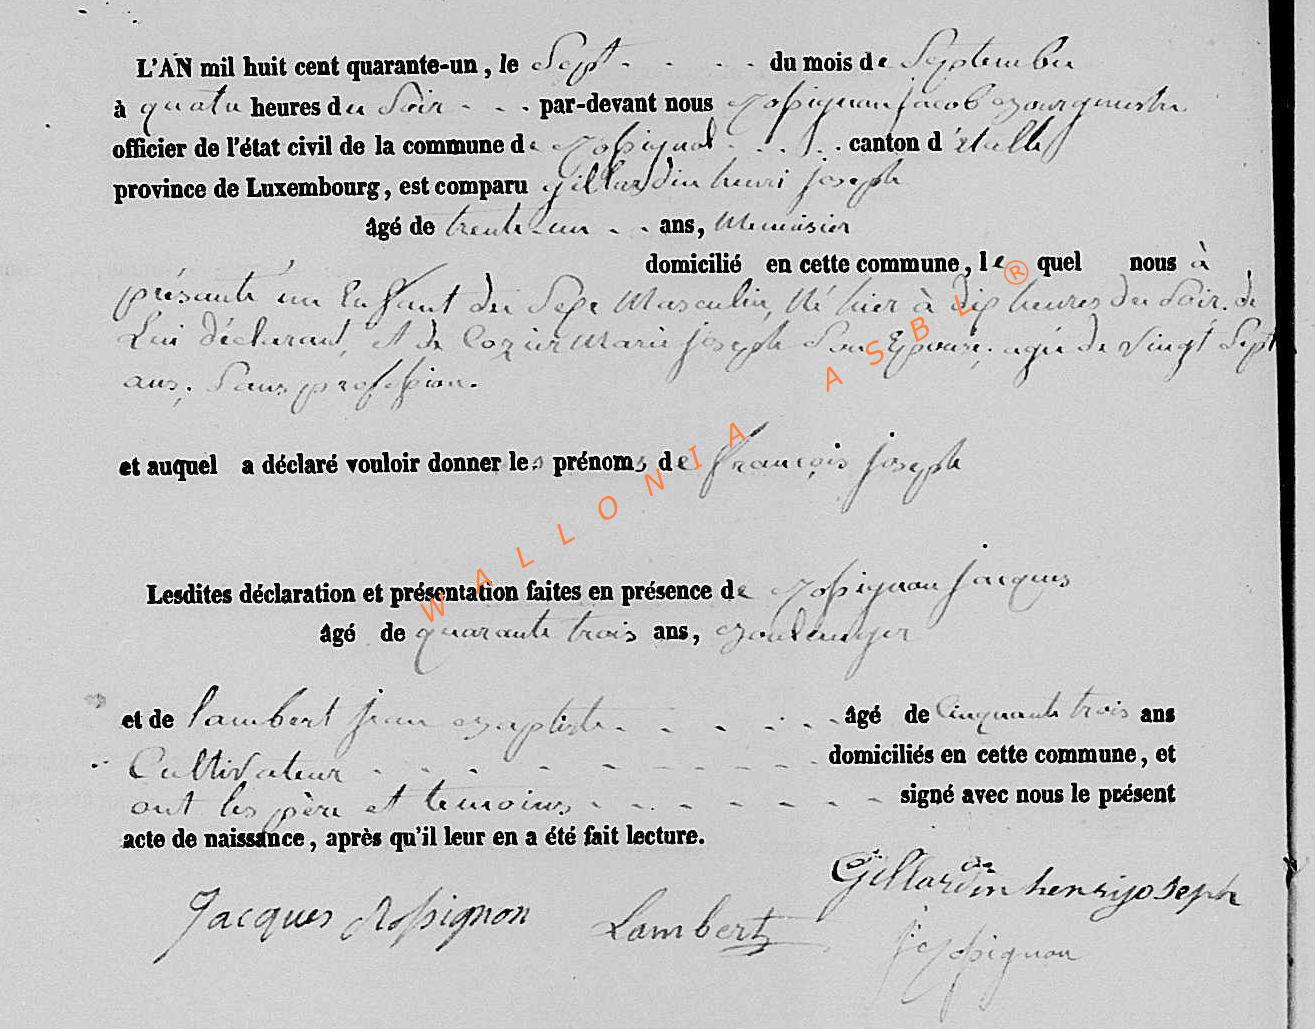 L'AN mil huit cent quarante-un, le Sept du mois de Septembre
à quatre heures du Soir par-devant nous Rossignon Jacob Bourgmestre
officier de l'état civil de la commune de Rossignol canton d'étalle
province de Luxembourg, est comparu Gillardin henri Joseph
âgé de trente-un ans, Menuisier
domicilié en cette commune, le quel nous à
présenté un Enfant du Sexe Masculin, Né hier à dix heures du Soir, de
Lui déclarant, et de Marie Joseph Son Epouse, agée de Vingt Sept
ans, Sans profession.
et auquel a déclaré vouloir donner les prénoms de françois Joseph
Lesdites déclaration et présentation faites en présence de Rossignon Jacques
âgé de quarante trois ans, Boulanger
et de Lambert Jean Baptiste âgé de Cinquante trois ans
Cultivateur domiciliés en cette commune, et
ont les père et temoins signé avec nous le présent
acte de naissance, après qu'il leur en a été fait lecture.
Gillardin henri joseph
Jacques Rossignon Lambert
J Rossignon
WALLONIA ASBL ®